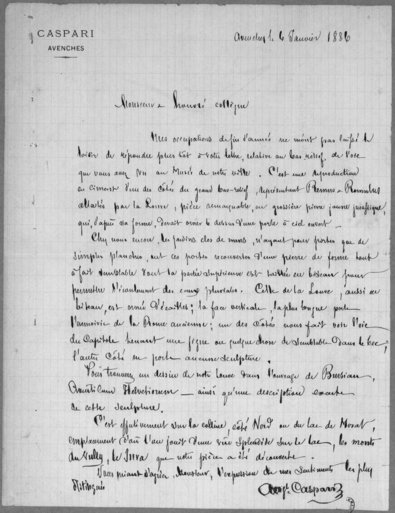 CASPARI
AVENCHES
Avenches, le 6 Janvier 1886
Monsieur & honoré collègue
Mes occupations de fin d'année ne m'ont pas laissé le
loisir de répondre plus tôt à votre lettre, relative au bas relief de l'oie
que vous avez vu au Musée de notre ville. C'est une reproduction
en ciment d'un des côtés du grand bas-relief, représentant Remus & Romulus
allaités par la Louve, pièce remarquable, en grossière pierre jaune jurassique,
qui, d'après sa forme, devait orner le dessus d'une porte à ciel ouvert.
Chez nous encore, les jardins clos de murs, n'ayant pour portes que de
simples planches, ont ces portes recouvertes d'une pierre de forme tout
à fait semblable dont la partie supérieure est taillée en biseau pour
permettre l'écoulement des eaux pluviales. Celle de la Louve, aussi en
biseau, est ornée d'écailles; la face verticale, la plus longue porte
l'armoirie de la Rome ancienne; un des côtés nous fait voir l'oie
du Capitole tenant une figue ou quelque chose de semblable dans le bec,
l'autre côté ne porte aucune sculpture.
Vous trouverez un dessin de notre louve dans l'ouvrage de Bursian,
Aventicum Helvetiorum — ainsi qu'une description exacte
de cette sculpture.
C'est effectivement sur la colline, côté Nord ou du lac de Morat,
emplacement d'où l'on jouit d'une vue splendide sur le lac, les monts
du Vully, le Jura que notre pièce a été découverte.
Vous priant d'agréer, Monsieur, l'expression de mes sentiments les plus
distingués
Aug. Caspari